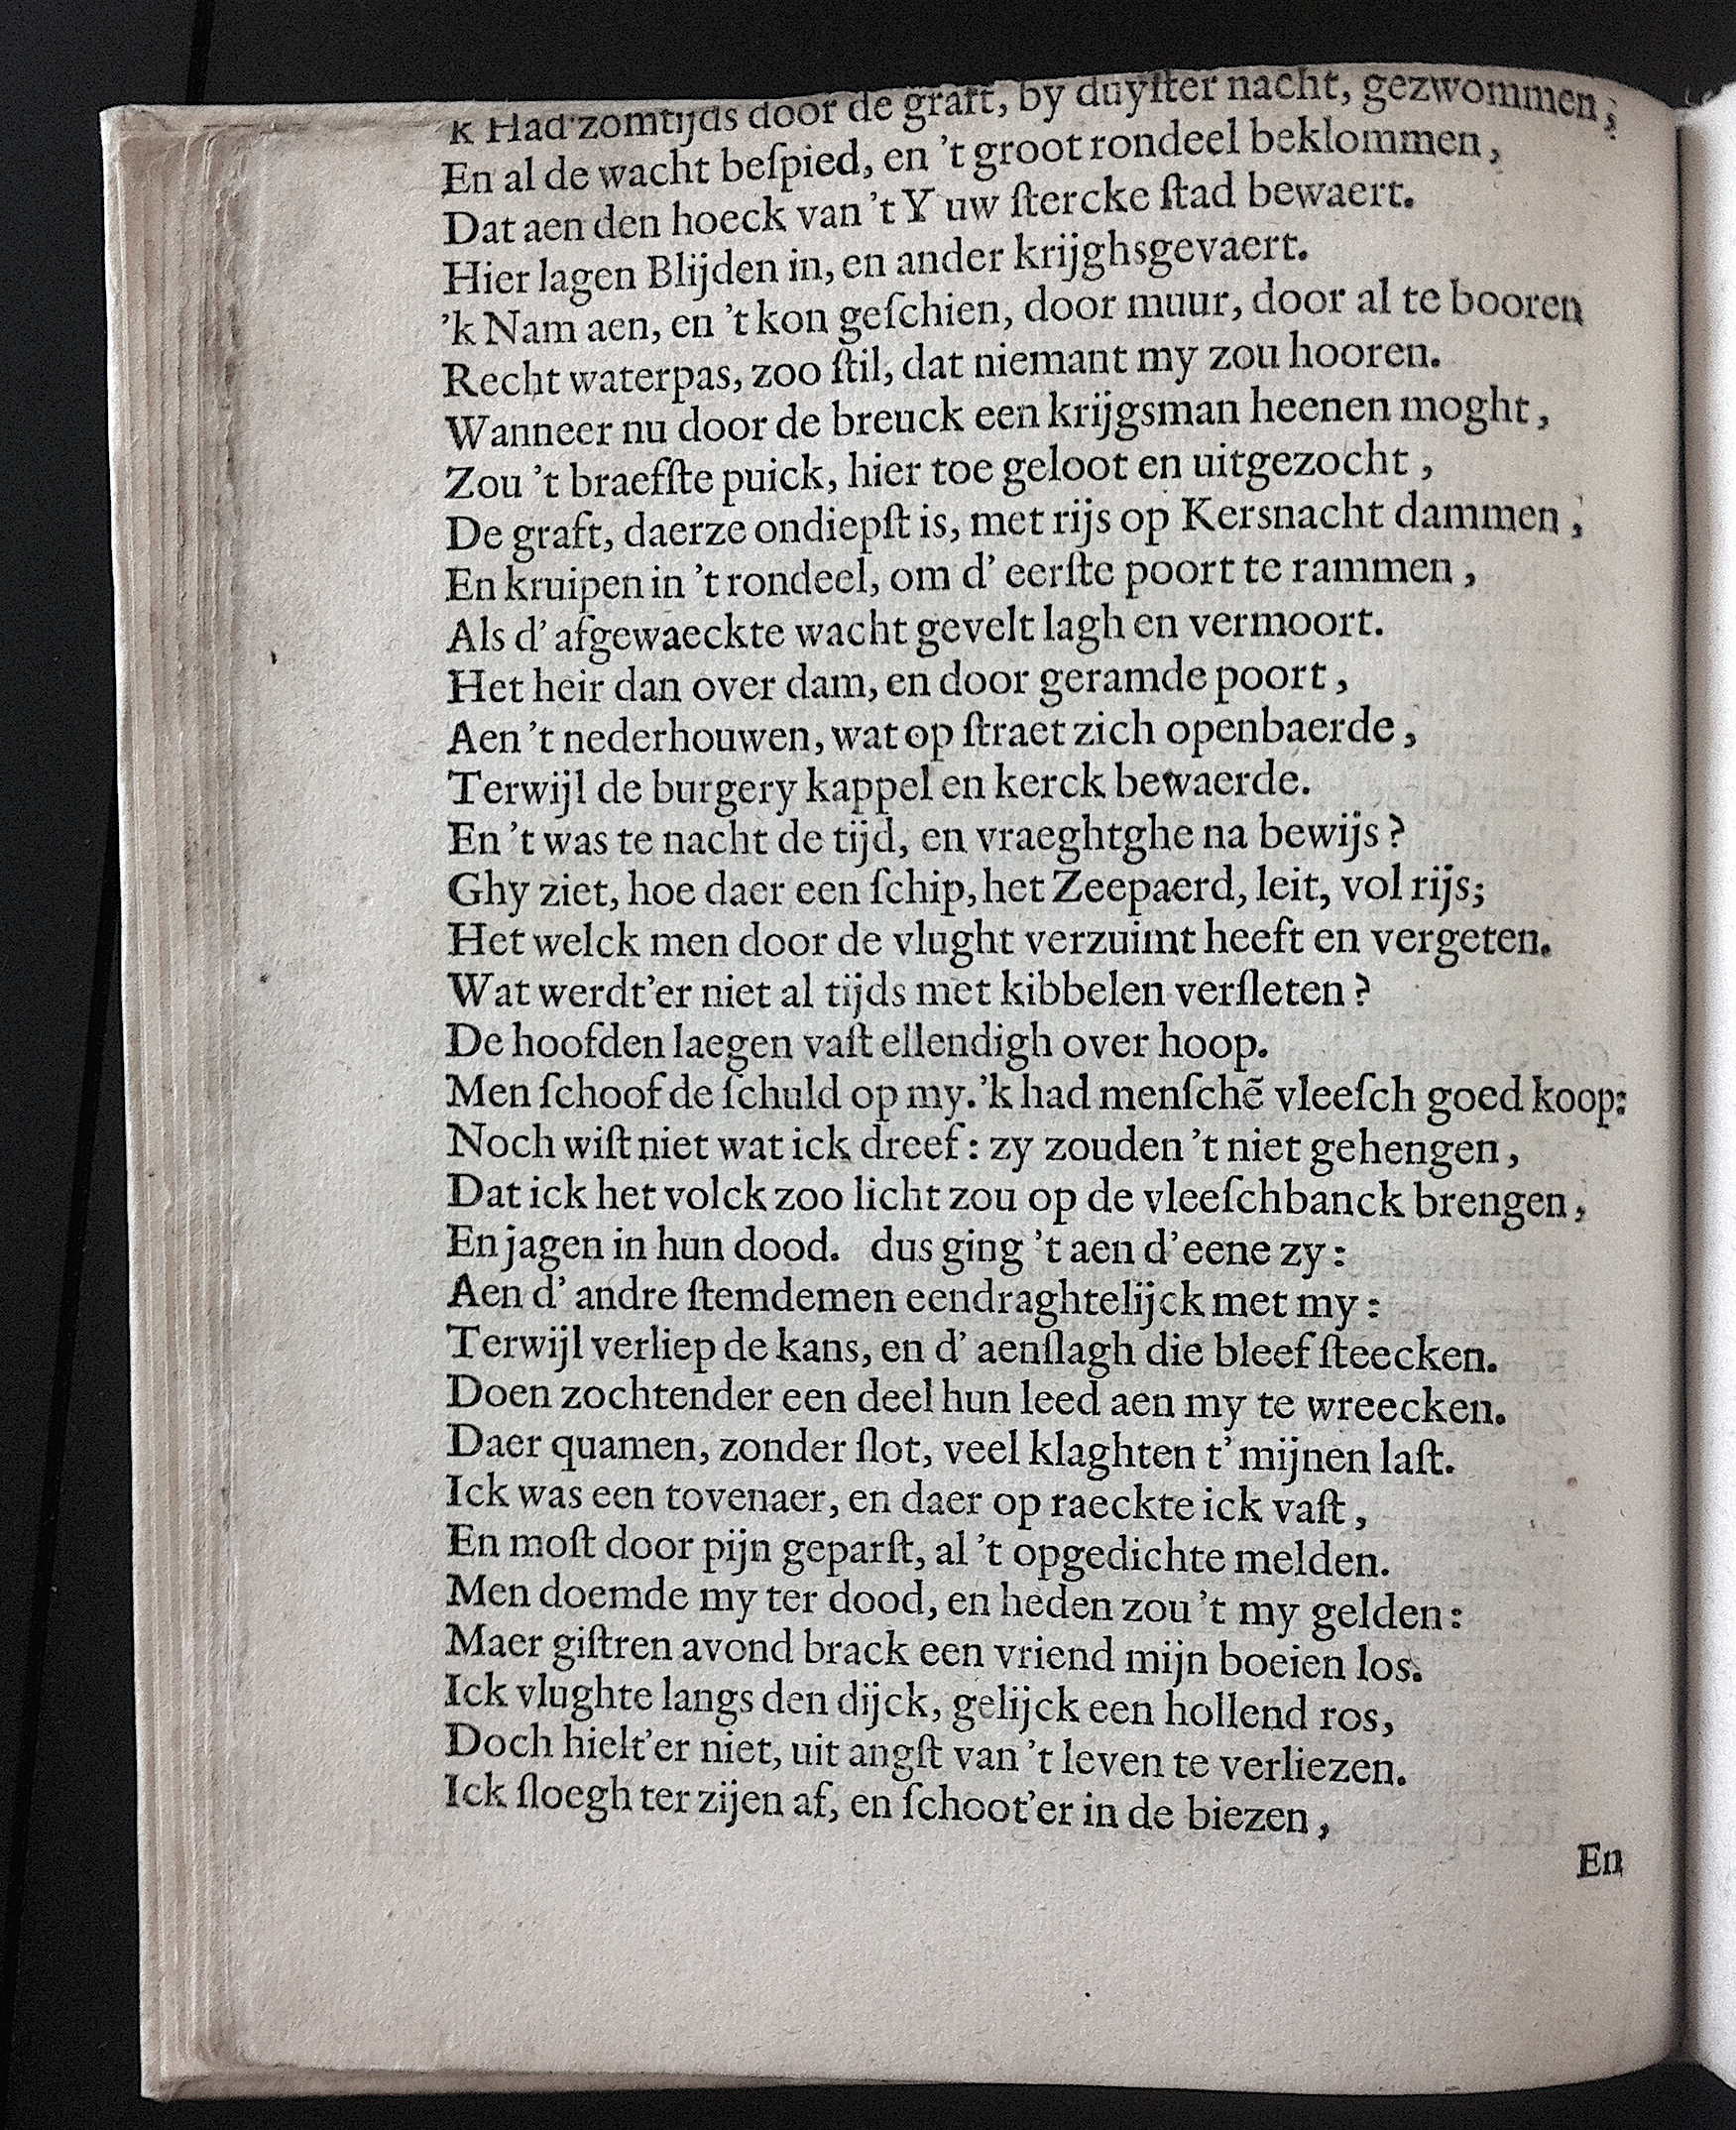 'k Had zomtijds door de graft, by duyſter nacht, gezwommen;
En al de wacht beſpied, en 't groot rondeel beklommen,
Dat aen den hoeck van 't Y uw ſtercke ſtad bewaert.
Hier lagen Blijden in, en ander krijghsgevaert.
'k Nam aen, en 't kon geſchien, door muur, door al te booren
Recht waterpas, zoo ſtil, dat niemant my zou hooren.
Wanneer nu door de breuck een krijgsman heenen moght,
Zou 't braefſte puick, hier toe geloot en uitgezocht,
De graft, daerze ondiepſt is, met rijs op Kersnacht dammen,
En kruipen in 't rondeel, om d' eerſte poort te rammen,
Als d' afgewaeckte wacht gevelt lagh en vermoort.
Het heir dan over dam, en door geramde poort,
Aen 't nederhouwen, wat op ſtraet zich openbaerde,
Terwijl de burgery kappel en kerck bewaerde.
En 't was te nacht de tijd, en vraeghtghe na bewijs?
Ghy ziet, hoe daer een ſchip, het Zeepaerd, leit, vol rijs;
Het welck men door de vlught verzuimt heeft en vergeten.
Wat werdt'er niet al tijds met kibbelen verſleten?
De hoofden laegen vaſt ellendigh over hoop.
Men ſchoof de ſchuld op my. 'k had menſchẽ vleeſch goed koop:
Noch wiſt niet wat ick dreef: zy zouden 't niet gehengen,
Dat ick het volck zoo licht zou op de vleeſchbanck brengen,
En jagen in hun dood. dus ging 't aen d' eene zy:
Aen d' andre ſtemdemen eendraghtelijck met my:
Terwijl verliep de kans, en d' aenſlagh die bleef ſteecken.
Doen zochtender een deel hun leed aen my te wreecken.
Daer quamen, zonder ſlot, veel klaghten t' mijnen laſt.
Ick was een tovenaer, en daer op raeckte ick vaſt,
En moſt door pijn geparſt, al 't opgedichte melden.
Men doemde my ter dood, en heden zou 't my gelden:
Maer giſtren avond brack een vriend mijn boeien los.
Ick vlughte langs den dijck, gelijck een hollend ros,
Doch hielt'er niet, uit angſt van 't leven te verliezen.
Ick ſloegh ter zijen af, en ſchoot'er in de biezen,
En